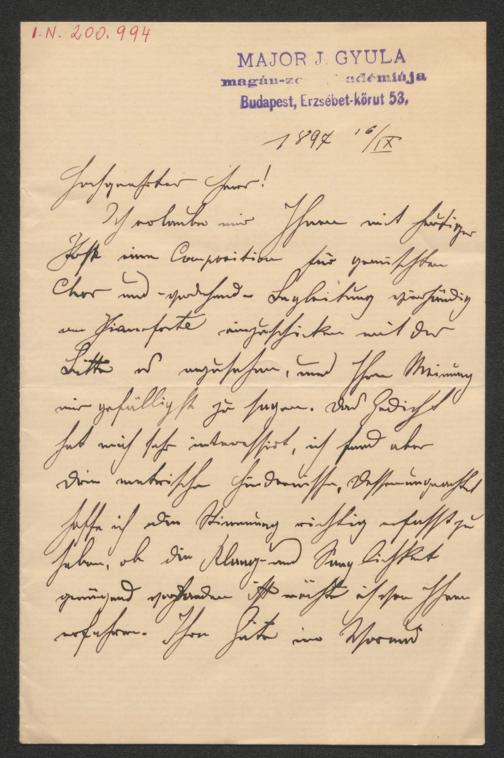 I.N. 200.994
MAJOR J. GYULA
magán-ze adémiája
Budapest, Erzsébet-körut 53.
1897 16/IX
Hochgeehrter Herr!
Ich erlaube mir Ihnen mit heutiger
Post eine Composition für gemischten
Chor und Begleitung vierhändig
am Pianoforte einzuschicken mit der
Bitte es anzusehen, und Ihre Meinung
mir gefälligst zu sagen. Das Gedicht
hat mich sehr interessirt, ich fand aber
drin metrische Hindernisse, Dessenungeachtet
hoffe ich die Stimmung richtig erfasst zu
haben, ob die Klang- und Sanglichkeit
genügend vorhanden ist möchte ich von Ihnen
erfahren. Ihre Güte im Voraus